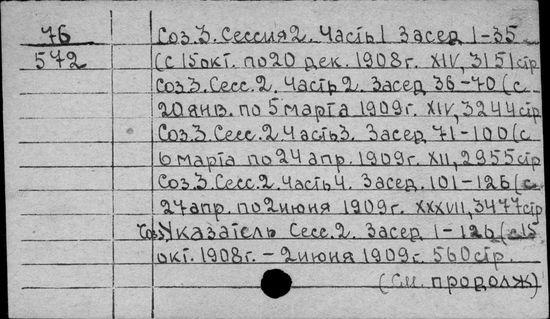 76 Соз.3. Сессия 2. Часть 1 Засед 1-35
572 (с 15 окт. по 20 дек. 1908 г. XIV, 3151 стр
Соз.3. Сесс.2. Часть 2. Засед 36-70 (с
20 янв. по 5 марта 1909 г. XIV, 3244 стр
Соз.3. Сесс.2 Часть 3. Засед 71-100 (с
6 марта по 24 апр. 1909 г. XII, 2955 стр
Соз.3. Сесс.2. Часть 4. Засед. 101-126 (с
27 апр. по 2 июня 1909 г. XXXVII, 3477 стр
Соз.3 Указатель Сесс.2. Засед 1-126 (с 15
окт. 1908 г. - 2 июня 1909 г. 560 стр.
(См. продолж)